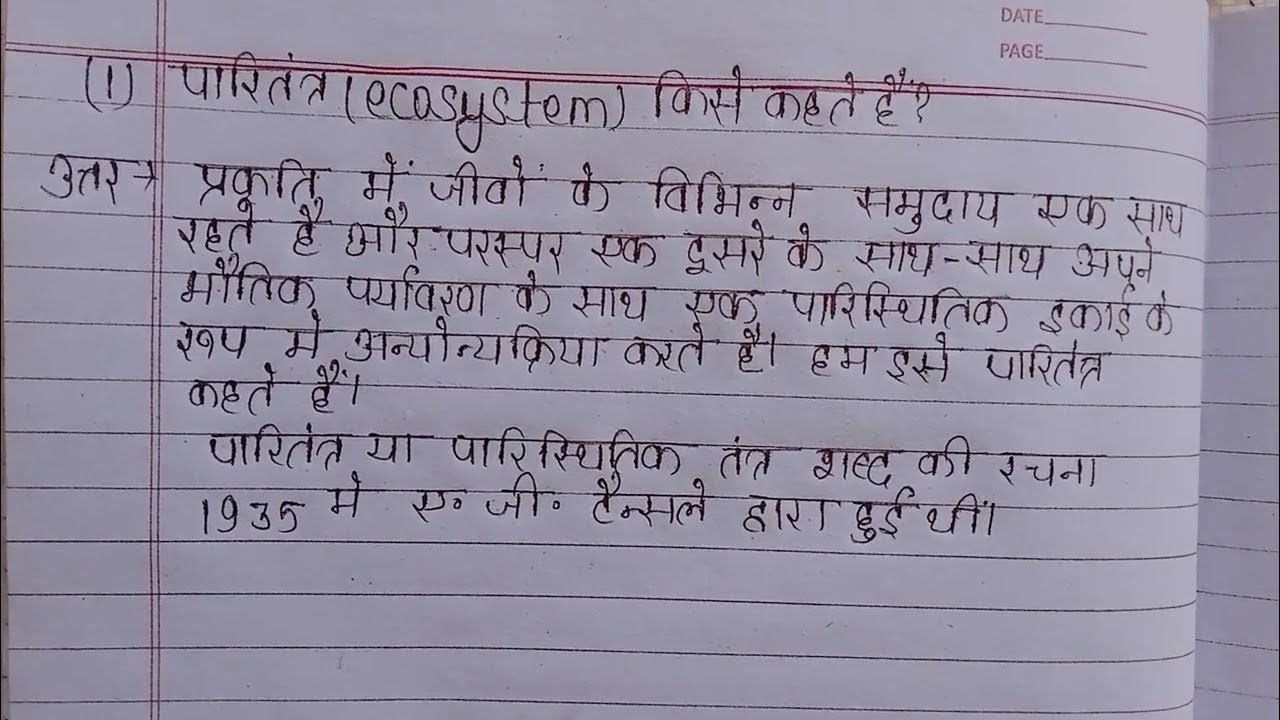 DATE
PAGE
(1) पारितंत्र (ecosystem) किसे कहते हैं?
उत्तर→ प्रकृति में जीवों के विभिन्न समुदाय एक साथ
रहते है और परस्पर एक दूसरे के साथ-साथ अपने
भौतिक पर्यावरण के साथ एक पारिस्थितिक इकाई के
रूप मे अन्योन्यक्रिया करते है। हम इसे पारितंत्र
कहते हैं।
पारितंत्र या पारिस्थितिक तंत्र शब्द की रचना
1935 मे ए. जी. टैन्सले द्वारा हुई थी।